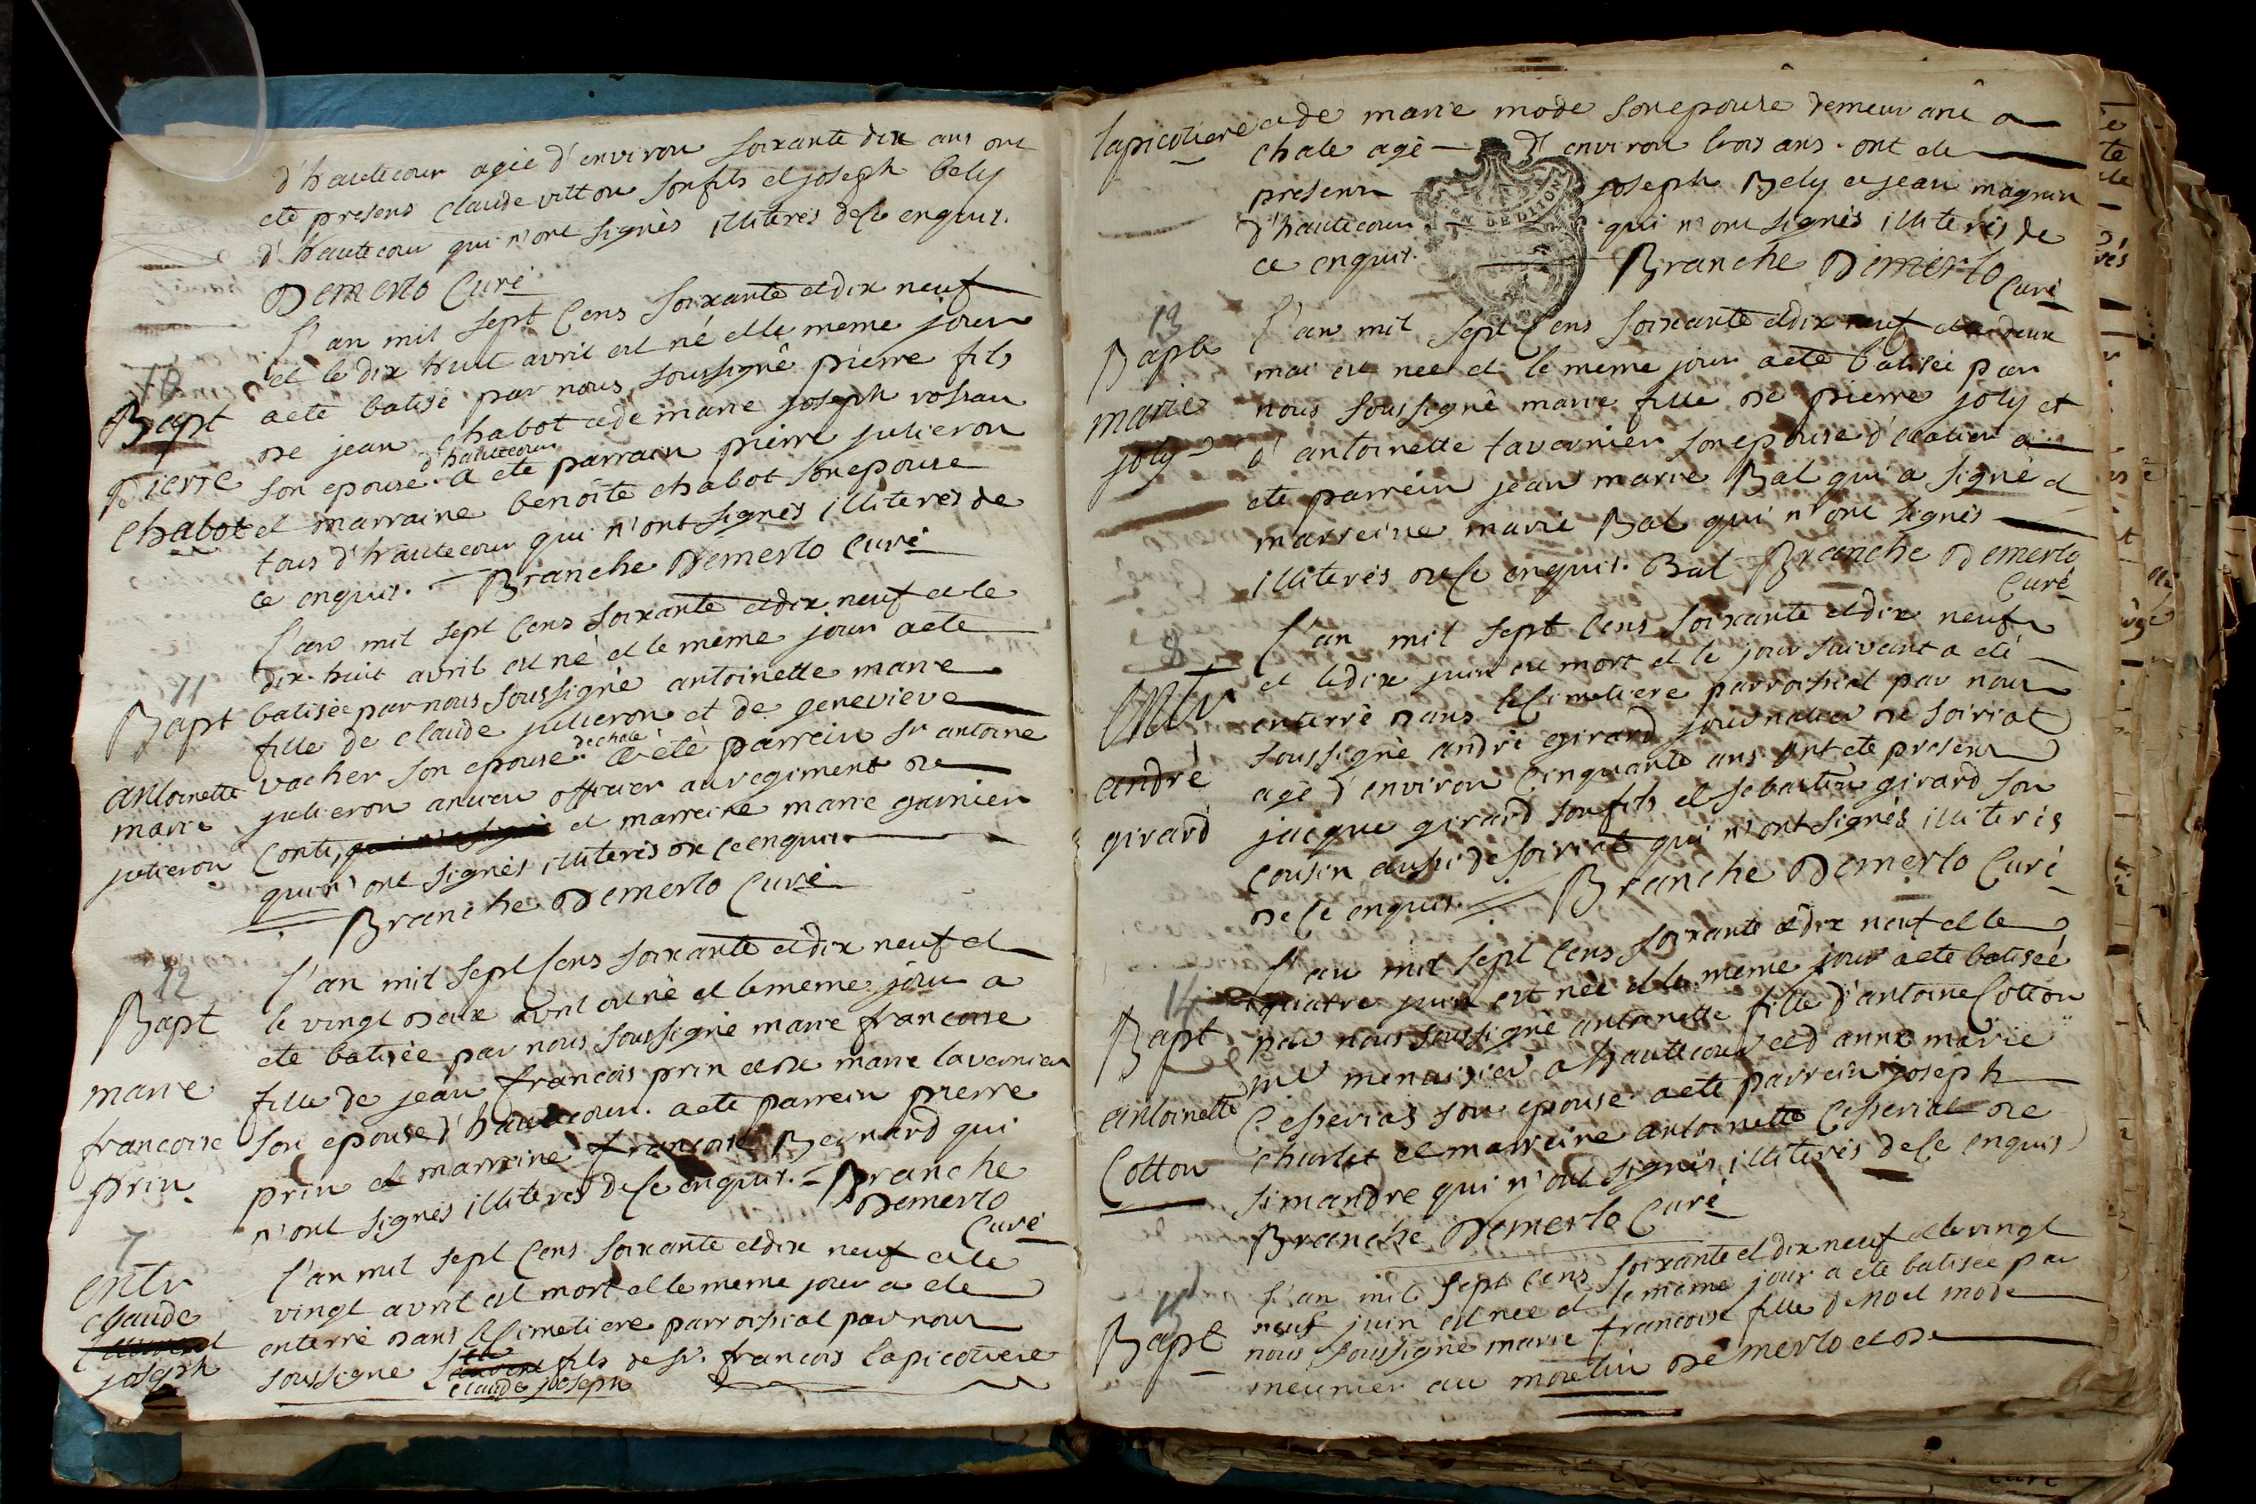 d'hautecour agée d'environ soixante dix ans ont
eté presens claude vitton son fils et joseph bely
d'hautecour qui n'ont signés illiterés de ce enquis.
Demerlo Curé
10
Bapt
pierre
chabot
L'an mil sept cens soixante et dix neuf
et le dix huit avril est né et le meme jour
a eté batisé par nous soussigné pierre fils
de jean chabot et de marie joseph
son epouse d'hautecour a eté parrain pierre julieron
et marraine benoite chabot son epouse
tous d'hautecour qui n'ont signés illiterés de
ce enquis. Branche Demerlo Curé
11
Bapt
antoinette
marie
julieron
L'an mil sept cens soixante et dix neuf et le
dix huit avril est né et le meme jour a eté
batisée par nous soussigné antoinette marie
fille de claude julieron et de genevieve
vacher son epouse de chale. a eté parrein sr antoine
julieron ancien officier au regiment de
Conti, et marreine marie garnier
qui n'ont signés illiterés de ce enquis
Branche Demerlo Curé
12
Bapt
marie
francoise
prin
L'an mil sept cens soixante et dix neuf et
le vingt deux avril est né et le meme jour a
eté batisée par nous soussigné marie francoise
fille de jean francois prin et de marie tavernier
son epouse d'hautecour. a eté parrein pierre
prin et marreine francoise Bernard qui
n'ont signés illiterés de ce enquis. Branche
Demerlo
Curé
7
entr
claude
joseph
L'an mil sept cens soixante et dix neuf et le
vingt avril est mort et le meme jour a eté
enterré dans le cimetiere parroissial par nous
soussigné claude joseph fils de sr. francois lapicotiere
lapicotiere et de marie mode son epouse demeurant a
chale agé d'environ trois ans. ont eté
presens joseph Bely et jean magnin
d'hautecour qui n'ont signés illiterés de
ce enquis. Branche Demerlo
Curé
13
Bapt
marie
joly
L'an mil sept cens soixante et dix neuf et le deux
mai est née et le meme jour a eté batisée par
nous soussigné marie fille de pierre joly et
d'antoinette tavernier son epouse d' a
eté parrein jean marie Bal qui a signé et
marreine marie Bal qui n'ont signés
illiterés de ce enquis. Bal Branche Demerlo
Curé
8
entr
andré
girard
L'an mil sept cens soixante et dix neuf
et le dix juin est mort et le jour suivant a eté
enterré dans le cimetiere parroissial par nous
soussigné andré girard journalier de soiriat
agé d'environ cinquante ans ont eté presens
jacque girard son fils et sebastien girard son
cousin aussi de soiriat qui n'ont signés illiterés
de ce enquis. Branche Demerlo Curé
14
Bapt
antoinette
Cotton
L'an mil sept cens soixante et dix neuf et le
quatre juin est née et le meme jour a eté batisée
par nous soussigné antoinette fille d'antoine Cotton
me menuisier a hautecour et d'anne marie
Cesserias son epouse a eté parrein joseph
charlet et marreine antoinette Cesseriat de
simandre qui n'ont signés illiterés de ce enquis
Branche Demerlo Curé
15
Bapt
L'an mil sept cens soixante et dix neuf et le vingt
neuf juin est née et le meme jour a eté batisée par
nous soussigné marie francoise fille de noel mode
meunier au moulin de merlo et de